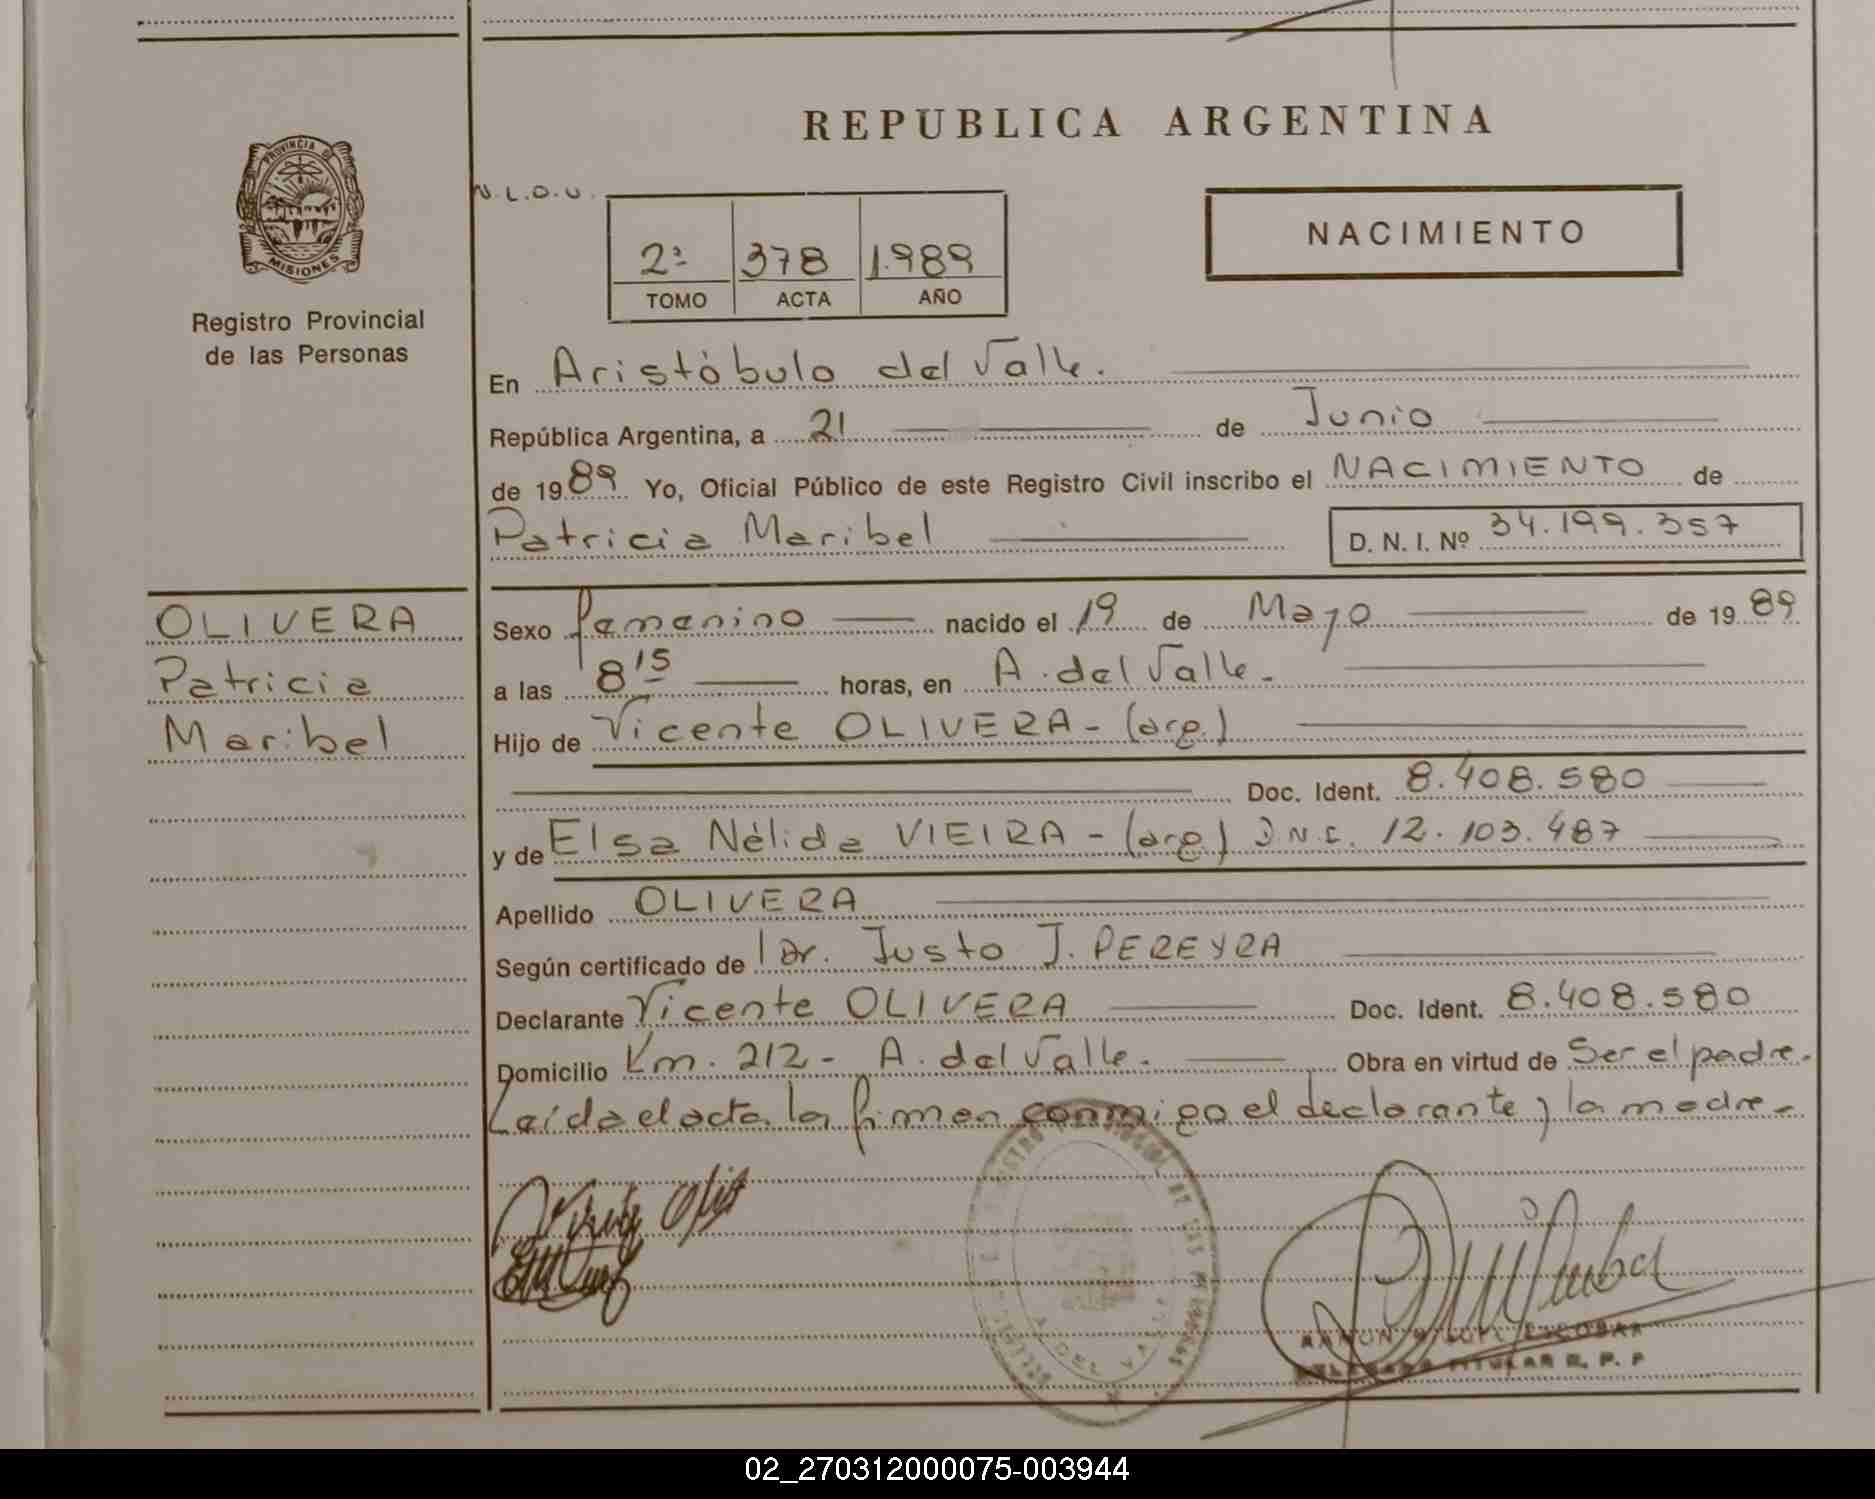 REPUBLICA ARGENTINA
PROVINCIA DE
MISIONES
Registro Provincial
de las Personas
N.L.O.U.
2ª 378 1.989
TOMO ACTA AÑO
NACIMIENTO
En Aristóbulo del Valle.
República Argentina, a 21 de Junio
de 1989 Yo, Oficial Público de este Registro Civil inscribo el NACIMIENTO de
Patricia Maribel D. N. I. Nº 34.199.357
OLIVERA
Patricia
Maribel
Sexo femenino nacido el 19 de Mayo de 1989
a las 8 15 horas, en A. del Valle.
Hijo de Vicente OLIVERA - (arg.)
Doc. Ident. 8.408.580
y de Elsa Nélida VIEIRA - (arg.) D.N.I. 12.103.487
Apellido OLIVERA
Según certificado de Dr. Justo J. PEREYRA
Declarante Vicente OLIVERA Doc. Ident. 8.408.580
Domicilio Km. 212 - A. del Valle. Obra en virtud de Ser el padre.
Leída el acta la firman conmigo el declarante y la madre -
RAMON MIGUEL ESCOBAR
DELEGADO TITULAR R. P. P
02_270312000075-003944